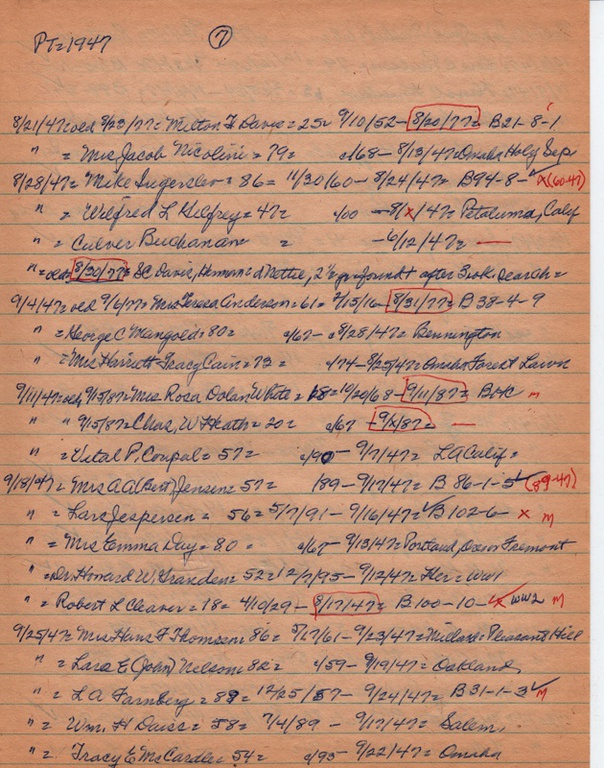 PT=1947 ⑦
8/21/47= old 8/23/77= Milton H Davis= 25= 9/10/52- 8/20/77= B21-8-1
" = Mrs Jacob Nicolini= 79= c/68- 8/13/47= Omaha Holy Sep.
8/28/47= Mike = 86= 11/30/60- 8/24/47= B94-8- x (60-47)
" = Wilfred L Gilfrey= 47= c/00 -8/x/47= Petaluma, Calif
" = Culver Buchanan= = -6/12/47= —
"= old 8/30/77= SC Davis, Herman & Nettie, 2 found after Book search=
9/4/47= old 9/6/77= Mrs Teresa Anderson= 61= 7/15/16- 8/31/77= B38-4-9
" = George C Mangold= 80= c/67- 8/28/47= Bennington
" = Mrs Harriett Tracy Cain= 73= c/74- 8/25/47= Omaha Forest Lawn
9/11/47= old 9/15/87= Mrs Rosa Dolan White= 18= 10/20/68- 9/11/87= B M
" " 9/15/87= Chas, W Heath= 20= c/67 -9/x/87= —
" = Vital P. Coupal= 57= c/90- 9/7/47= LA Calif=
9/18/47= Mrs AA (Bert) Jensen= 57= 189- 9/17/47= B 86-1-5 (89-47)
" = Lars Jespersen= 56= 5/7/91- 9/16/47= B102-6- x M
" = Mrs Emma Day= 80= c/67- 9/13/47= Portland, Fremont
" = Dr. Howard W. Granden= 52= 12/7/95- 9/12/47= Her= WW1
" = Robert L Cleaver= 18= 4/10/29- 8/17/47= B100-10- x WW2 M
9/25/47= Mrs Hans F Thomsen= 86= 5/17/61- 9/23/47= Millard= Pleasant Hill
" = Lars E (John) Nelson= 88= c/59- 9/19/47= Oakland,
" = LA Farnberg= 89= 12/25/57- 9/24/47= B31-1-3 M
" = Wm. H Daiss= 58= 7/4/89 - 9/17/47= Salem,
" = Tracy E McCardle= 54= c/93- 9/22/47= Omaha